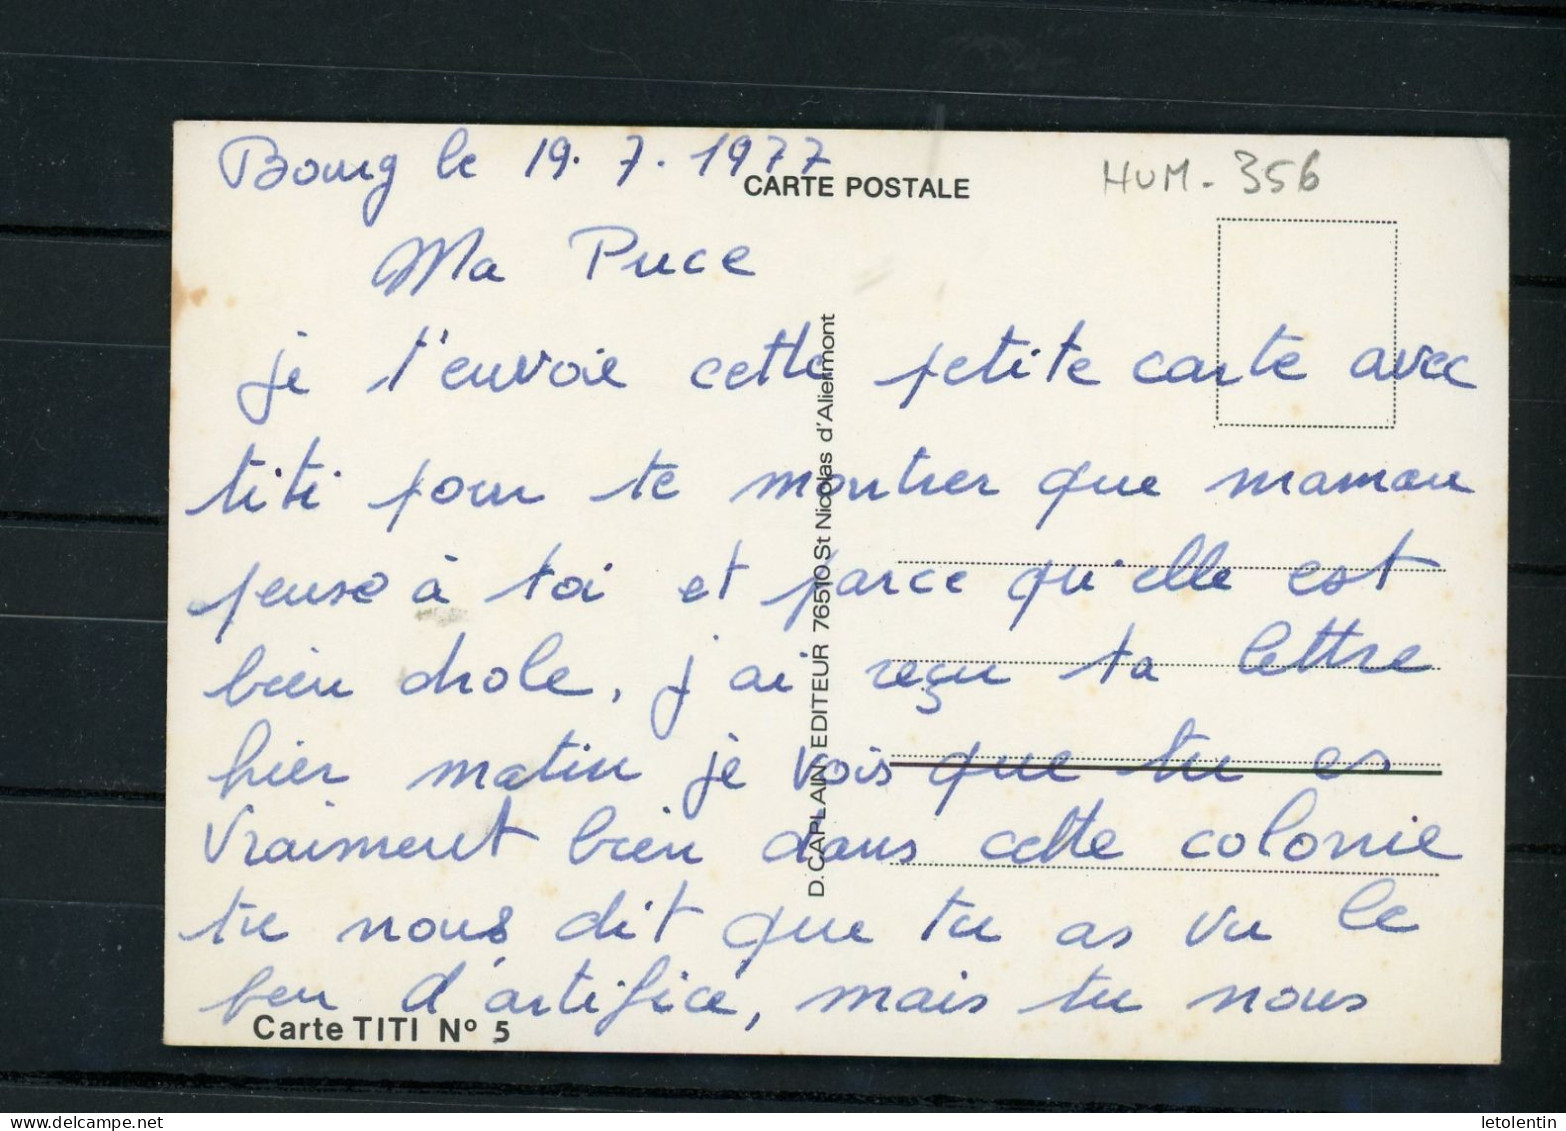 Bourg le 19.7.1977
CARTE POSTALE
HUM-356
Ma Puce
je t'envoie cette petite carte avec
titi pour te montrer que maman
pense à toi et parce qu'elle est
bien drole, j'ai reçu ta lettre
hier matin je vois que tu es
vraiment bien dans cette colonie
tu nous dit que tu as vu le
feu d'artifice, mais tu nous
Carte TITI Nº 5
D. CAPLAIN EDITEUR 76510 St Nicolas d'Aliermont
letolentin